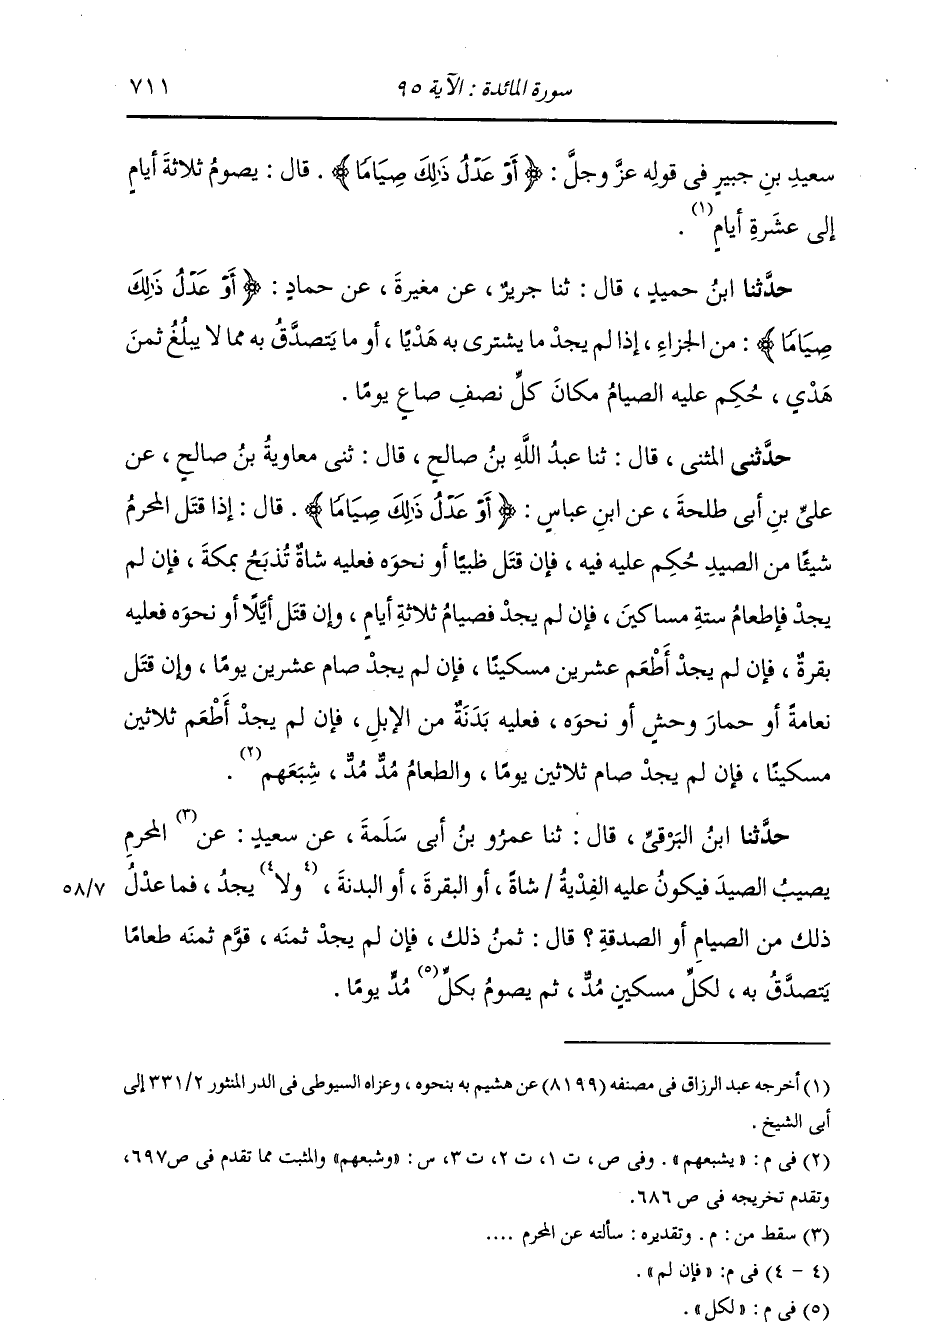 سورة المائدة : الآية ٩٥ ٧١١
سعيدِ بنِ جبيرٍ فى قولِه عزَّ وجلَّ : ﴿ أَوْ عَدْلُ ذَٰلِكَ صِيَامًا ﴾ . قال : يصومُ ثلاثةَ أيامٍ
إلى عشَرةِ أيامٍ(١) .
حدَّثنا ابنُ حميدٍ ، قال : ثنا جريرٌ ، عن مغيرةَ ، عن حمادٍ : ﴿ أَوْ عَدْلُ ذَٰلِكَ
صِيَامًا ﴾ : من الجزاءِ ، إذا لم يجدْ ما يشترى به هَدْيًا ، أو ما يَتصدَّقُ به مما لا يبلُغُ ثمنَ
هَدْيٍ ، حُكِم عليه الصيامُ مكانَ كلِّ نصفِ صاعٍ يومًا .
حدَّثنى المثنى ، قال : ثنا عبدُ اللَّهِ بنُ صالحٍ ، قال : ثنى معاويةُ بنُ صالحٍ ، عن
علىِّ بنِ أبى طلحةَ ، عن ابنِ عباسٍ : ﴿ أَوْ عَدْلُ ذَٰلِكَ صِيَامًا ﴾ . قال : إذا قتَل المحرمُ
شيئًا من الصيدِ حُكِم عليه فيه ، فإن قتَل ظبيًا أو نحوَه فعليه شاةٌ تُذبَحُ بمكةَ ، فإن لم
يجدْ فإطعامُ ستةِ مساكينَ ، فإن لم يجدْ فصيامُ ثلاثةِ أيامٍ ، وإن قتَل أيَّلًا أو نحوَه فعليه
بقرةٌ ، فإن لم يجدْ أَطْعَم عشرين مسكينًا ، فإن لم يجدْ صام عشرين يومًا ، وإن قتَل
نعامةً أو حمارَ وحشٍ أو نحوَه ، فعليه بَدَنَةٌ من الإبلِ ، فإن لم يجدْ أَطْعَم ثلاثين
مسكينًا ، فإن لم يجدْ صام ثلاثين يومًا ، والطعامُ مُدٌّ مُدٌّ ، شِبَعَهم(٢) .
حدَّثنا ابنُ البَرْقىِّ ، قال : ثنا عمرُو بنُ أبى سَلَمةَ ، عن سعيدٍ : عن(٣) المحرمِ
يصيبُ الصيدَ فيكونُ عليه الفِدْيةُ / شاةً ، أو البقرةَ ، أو البدنةَ ، (٤ولا٤) يجدُ ، فما عدْلُ ٥٨/٧
ذلك من الصيامِ أو الصدقةِ ؟ قال : ثمنُ ذلك ، فإن لم يجدْ ثمنَه ، قوَّم ثمنَه طعامًا
يَتصدَّقُ به ، لكلِّ مسكينٍ مُدٌّ ، ثم يصومُ بكلِّ(٥) مُدٍّ يومًا .
(١) أخرجه عبد الرزاق فى مصنفه (٨١٩٩) عن هشيم به بنحوه ، وعزاه السيوطى فى الدر المنثور ٣٣١/٢ إلى
أبى الشيخ .
(٢) فى م : « يشبعهم » . وفى ص ، ت ١ ، ت ٢ ، ت ٣ ، س : «وشبعهم» والمثبت مما تقدم فى ص ٦٩٧ ،
وتقدم تخريجه فى ص ٦٨٦.
(٣) سقط من : م . وتقديره : سألته عن المحرم ....
(٤ - ٤) فى م: « فإن لم» .
(٥) فى م : «لكل» .